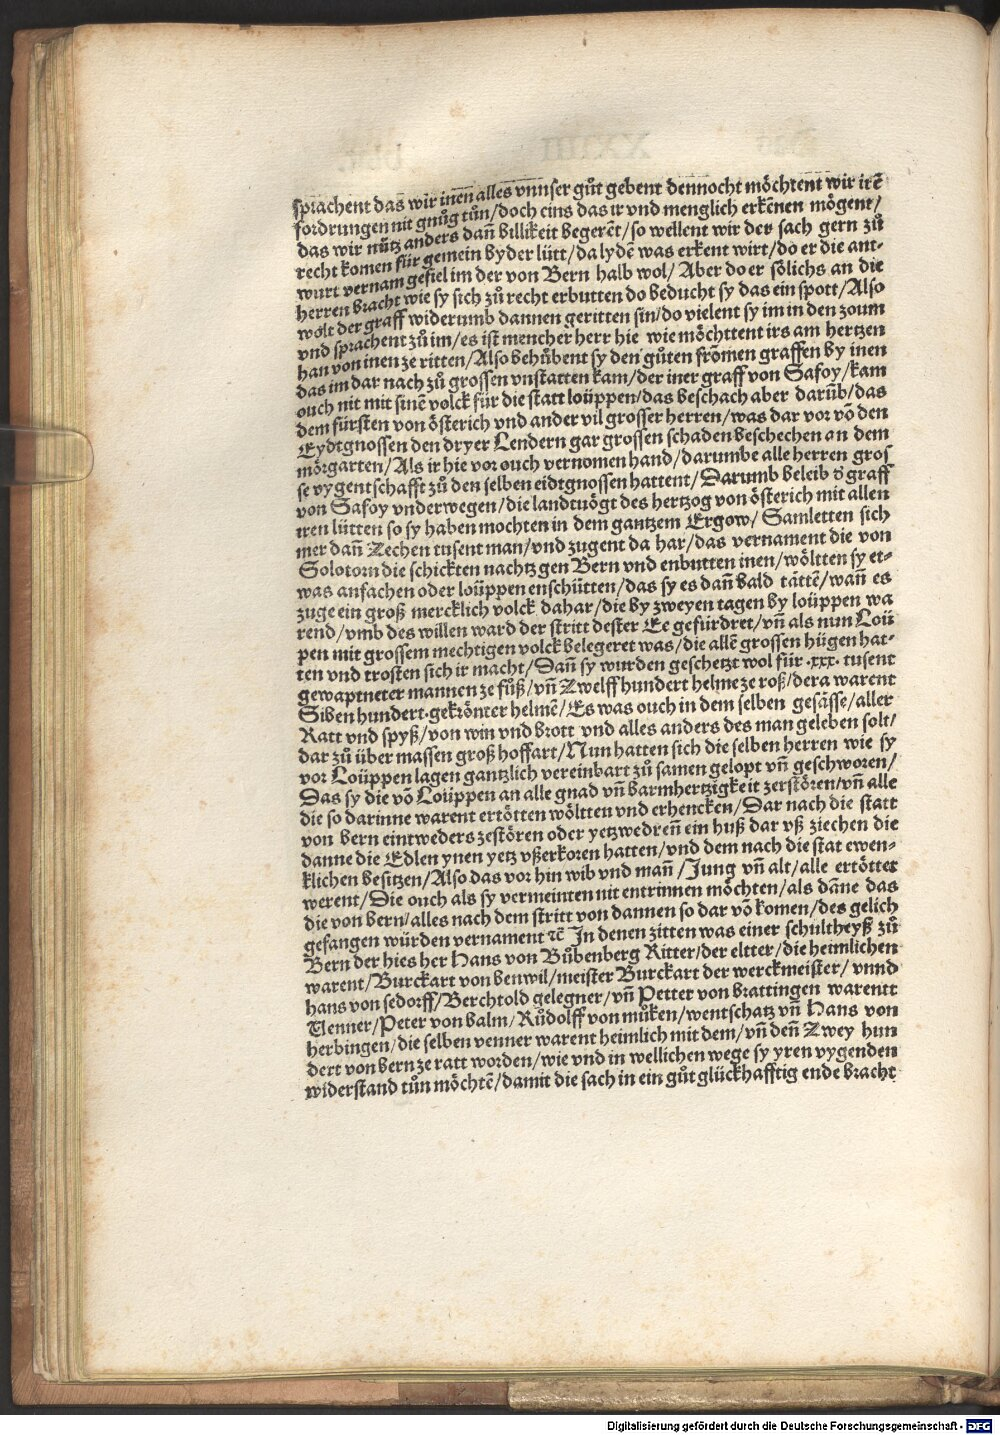 sprachent das wir inen̄ alles vnnser gůt gebent dennocht möchtent wir irē
fordrungen nit gnůg tůn/doch eins das ir vnd menglich erkēnen mögent/
das wir nütz anders dañ billikeit begerēt/so wellent wir der sach gern zů
recht komen für gemein byder lütt/da lydē was erkent wirt/do er die ant⸗
wurt vernam gefiel im der von Bern halb wol/Aber do er sölichs an die
herren bracht wie sy sich zů recht erbutten do beducht sy das ein spott/Also
wolt der graff widerumb dannen geritten sin/do vielent sy im in den zoum
vnd sprachent zů im/es ist mencher herr hie wie möchttent irs am hertzen
han von inen ze ritten/Also behůbent sy den gůten frömen graffen by inen
das im dar nach zů grossen vnstatten kam/der iner graff von Safoy/kam
ouch nit mit sinē volck für die statt loüppen/das beschach aber darūb/das
dem fürsten von österich vnd ander vil grosser herren/was dar vor vō den
Eydtgnossen den dryer Lendern gar grossen schaden beschechen an dem
mörgarten/Als ir hie vor ouch vernomen hand/darumbe alle herren gros
se vygentschafft zů den selben eidtgnossen hattent/Darumb beleib d̄ graff
von Safoy vnderwegen/die landtuögt des hertzog von österich mit allen
iren lütten so sy haben mochten in dem gantzem Ergow/Samletten sich
mer dañ Zechen tusent man/vnd zugent da har/das vernament die von
Solotorn die schickten nachtz gen Bern vnd enbutten inen/wöltten sy et⸗
was anfachen oder loüppen enschütten/das sy es dañ bald tättē/wañ es
zuge ein groß mercklich volck dahar/die by zweyen tagen by loüppen wa
rend/vmb des willen ward der stritt dester Ee gefürdret/vñ als nun Loü
pen mit grossem mechtigen volck belegeret was/die allē grossen hügen hat⸗
ten vnd trosten sich ir macht/Dañ sy wurden geschetzt wol für ·xxx· tusent
gewaptneter mannen ze fůß/vñ Zwelff hundert helme ze roß/dera warent
Siben hundert·gekrönter helmē/Es was ouch in dem selben gesässe/aller
Ratt vnd spyß/von win vnd brott vnd alles anders des man geleben solt/
dar zů über massen groß hoffart/Nun hatten sich die selben herren wie sy
vor Loüppen lagen gantzlich vereinbart zů samen gelopt vñ geschworen/
Das sy die vō Loüppen an alle gnad vñ barmhertzigkeit zerstören/vñ alle
die so darinne warent ertötten wöltten vnd erhencken/Dar nach die statt
von bern eintweders zestören oder yetzwedreñ ein huß dar vß ziechen die
danne die Edlen ynen yetz vßerkoren hatten/vnd dem nach die stat ewen⸗
klichen besitzen/Also das vor hin wib vnd mañ/Jung vñ alt/alle ertöttet
werent/Die ouch als sy vermeinten nit entrinnen möchten/als dāne das
die von bern/alles nach dem stritt von dannen so dar vō komen/des gelich
gefangen würden vernament ⁊c̄ In denen zitten was einer schultheyß zů
Bern der hies her Hans von Bůbenberg Ritter/der eltter/die heimlichen
warent/Burckart von benwil/meister Burckart der werckmeister/vnnd
hans von sedorff/Berchtold gelegner/vñ Petter von brattingen warentt
Venner/Peter von balm/Růdolff von můken/wentschatz vñ Hans von
herbingen/die selben venner warent heimlich mit dem/vñ deñ Zwey hun
dert von bern ze ratt worden/wie vnd in wellichen wege sy yren vygenden
widerstand tůn möchtē/damit die sach in ein gůt glückhafftig ende bracht
Digitalisierung gefördert durch die Deutsche Forschungsgemeinschaft - DFG